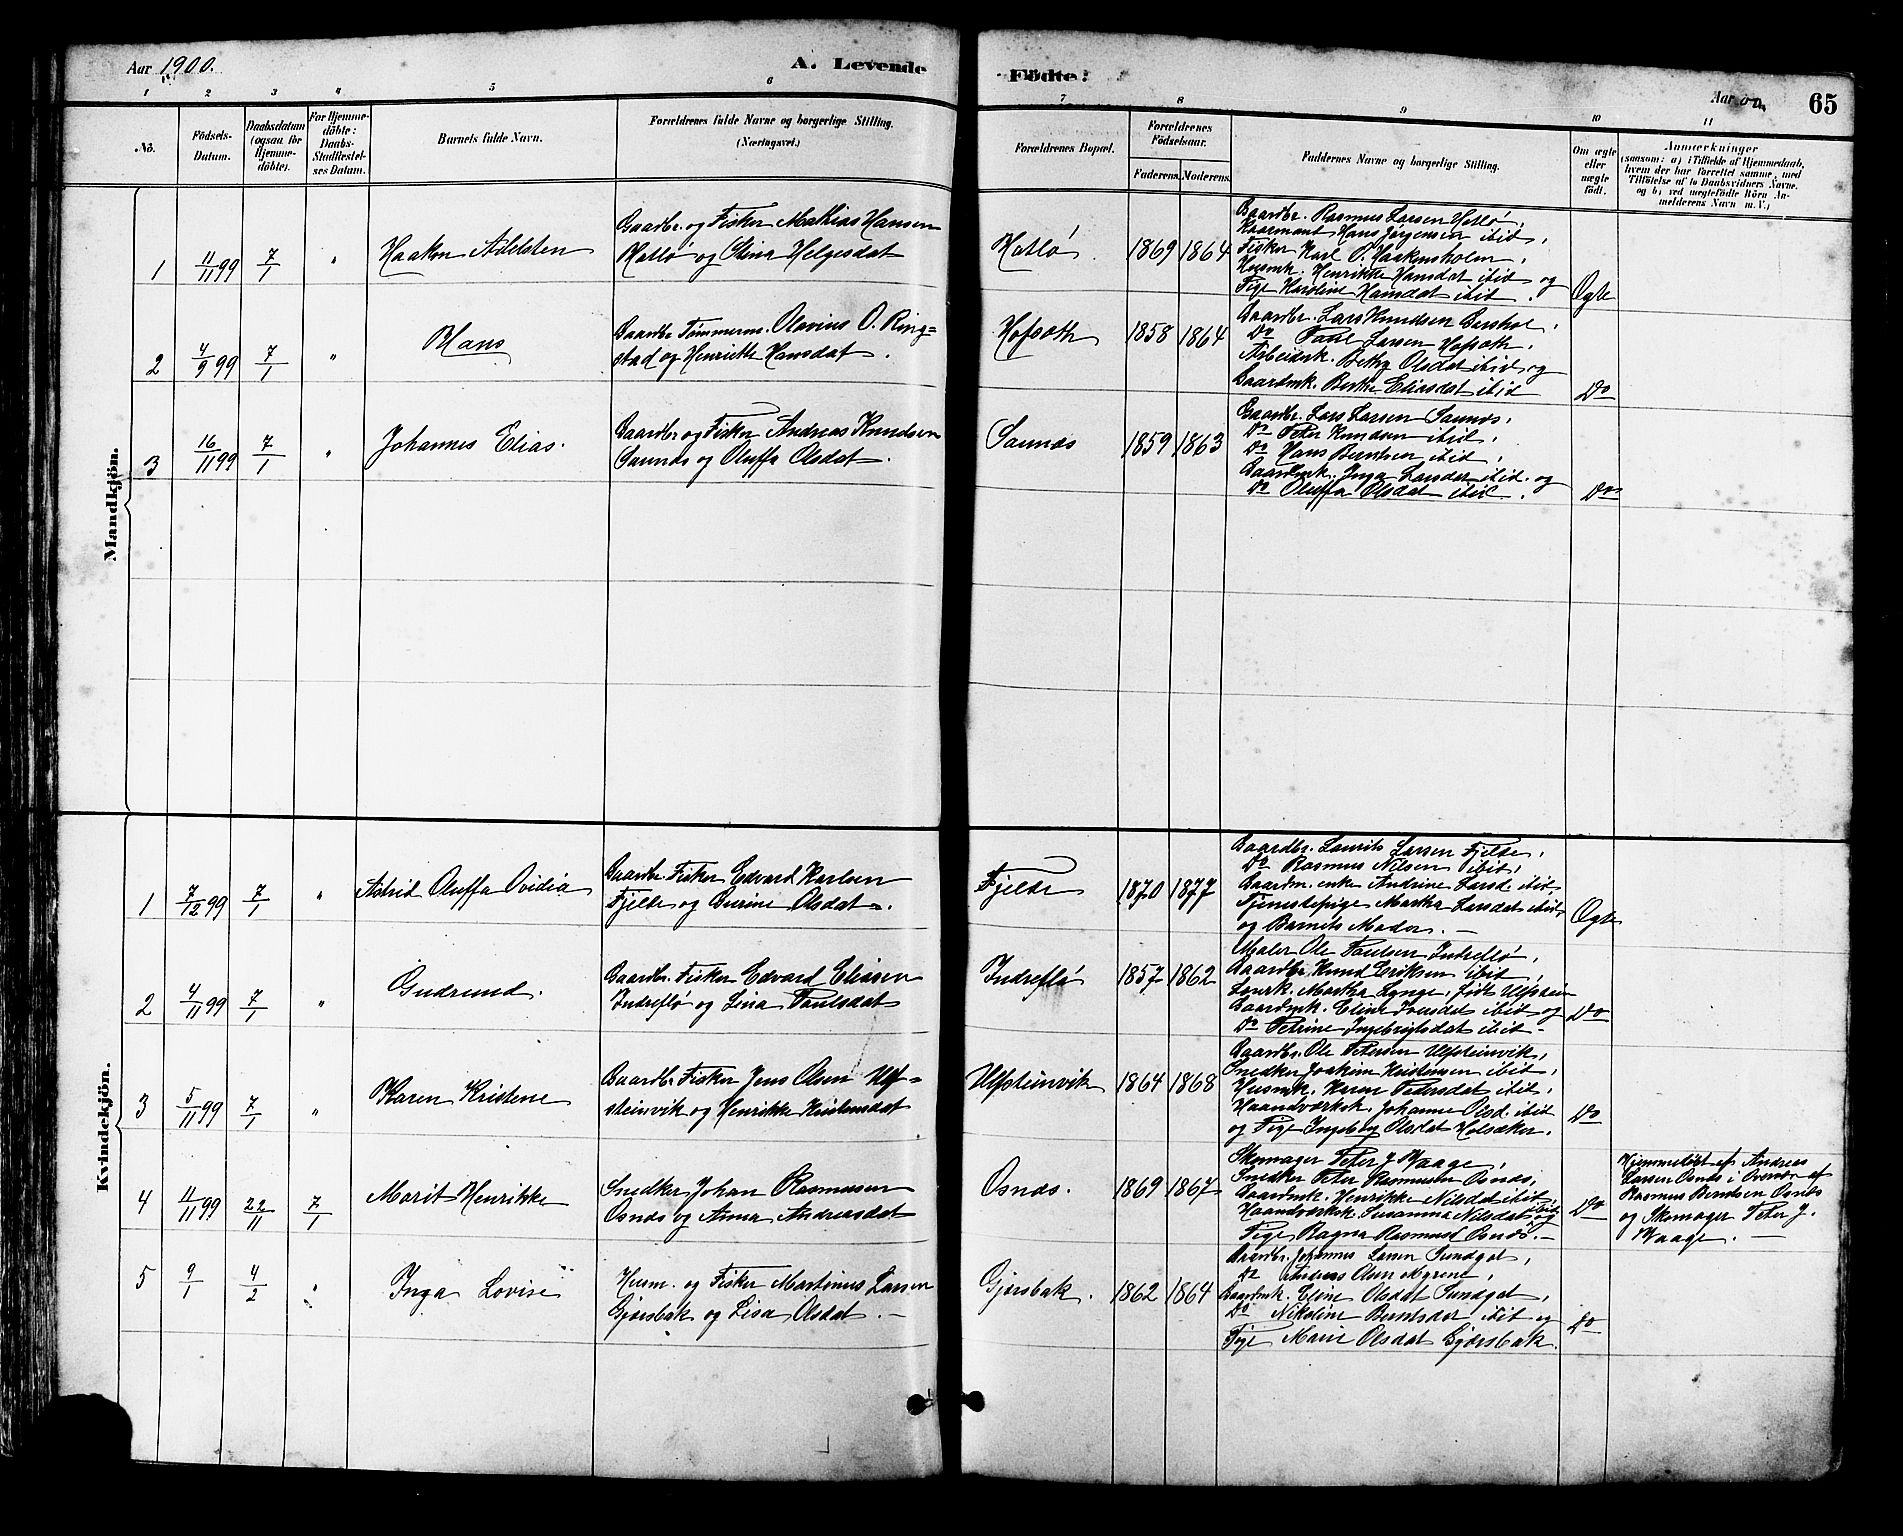 Aar 1900.
A. Levende Födte:
Aar
65
1 2 3 4 5 6 7 8 9 10 11
No.
Födsels-Datum.
Daabsdatum (ogsaa for Hjemme-döbte).
For Hjemme-döbte: Daabs-Stadfæstel-ses Datum.
Barnets fulde Navn.
Forældrenes fulde Navne og borgerlige Stilling.
(Næringsvei.)
Forældrenes Bopæl.
Forældrenes Födselsaar.
Faderens. Moderens.
Faddernes Navne og borgerlige Stilling.
Om ægte eller uægte födt.
Anmærkninger
(saasom: a) i Tilfælde af Hjemmedaab,
hvem der har forrettet samme, med
Tilföielse af to Daabsvidners Navne.
og b) ved uægtefödte Börn An-
melderens Navn m. V.)
Mandkjön.
1 11/11 99 7/1 " Haakon Adelsten
Gaardbr. og Fisker Mathias Hansen
Hatlø og Stina Helgesdat
Hatlø 1869 1864
Gaardbr. Rasmus Larsen Hatlø,
Kaarmand Hans Jørgensen ibid,
Fisker Karl O. Haakensholm,
Husmk. Henrikke Hansdat ibid og
Pige Karoline Hansdat ibid.
Ægte
2 4/9 99 7/1 " Hans
Gaardbr. Tømmerm. Olavius O. Ring=
stad og Henrikke Hansdat.
Hofsøth 1858 1864
Gaardbr. Lars Knudsen
Do Paul Larsen Hofsøth,
Arbeidsk. Bethy Olsdat ibid og
Gaardmk. Berthe Eliasdat ibid
Do
3 16/11 99 7/1 " Johannes Elias.
Gaardbr og Fisker Andreas Knudsen
Saunæs og Oluffa Olsdat.
Saunæs 1859 1863
Gaardbr. Lars Larsen Saunæs,
Do Peter Knudsen ibid,
Do Hans Berntsen ibid,
Gaardmk. Inga Larsdat ibid. og
Do Oluffa Olsdat ibid.
Do
Kvindekjön.
1 7/12 99 7/1 " Astrid Oluffa Ovidia
Gaardbr. Fisker Edvard Karlsen
Fjelde og Olsdat.
Fjelde 1870 1877
Gaardbr. Laurits Larsen Fjelde,
Do Rasmus Nilsen ibid,
Gaardm. enke Andrine Larsd. ibid
Tjenestepige Martha Larsdat ibid,
og Barnets Moder.
Ægte
2 4/11 99 7/1 " Gudrund.
Gaardbr. Fisker Edvard Eliasen
Indreflø og Lina Paulsdat
Indreflø 1857 1862
Maler Ole Paulsen Indreflø,
Gaardbr. Knud Eriksen ibid,
Martha Lynge, født Ulfstein
Gaardmk. Eline Iversdat ibid og
Do Petrine Ingebrigtsdat ibid
Do
3 5/11 99 7/1 " Karen Kristene
Gaardbr Fisker Jens Olsen Ulf=
steinvik og Henrikke Kristensdat
Ulfsteinvik 1864 1868
Gaardbr. Ole Petersen Ulfsteinvik,
Snedker Joakim Kristensen ibid,
Husmk. Karen Pedersdat ibid,
Haandværksk. Johanne Olsd. ibid
og Pige Ingeborg Olsdat Holsæker.
Do
4 11/11 99 22/11 7/1 Marit Henrikke
Snedker Johan Rasmussen
Osnæs og Anna Andersdat
Osnæs. 1869 1867
Skomager Peter J Waage,
Snedker Peter Rasmussen Osnæs,
Gaardmk. Henrikke Nilsdat ibid,
Haandværksk. Susanna Nilsdat ibid og
Pige Ragna Rasmusd Osnæs.
Do
Hjemmedøbt af Andreas
Larsen Osnæs i Overvær af
Rasmus Berntsen Osnæs
og Skomager Peter J.
Waage.
5 9/1 4/2 " Inga Lovise
Husm. og Fisker Martinus Larsen
Gjørsbak og Lisa Olsdat.
Gjørsbak. 1862 1864
Gaardbr. Johannes Larsen Sundgot,
Do Andreas Olsen Myrene,
Gaardmk. Eline Olsdat Sundgot,
Do Nikoline Berntsdat ibid og
Pige Marie Olsdat Gjørsbak.
Do